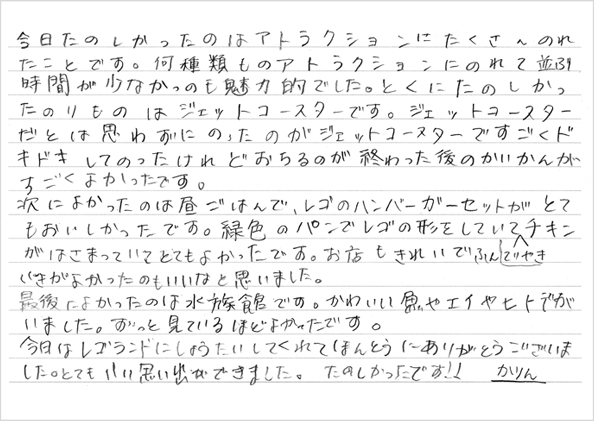 今日たのしかったのはアトラクションにたくさんのれ
たことです。何種類ものアトラクションにのれて並ぶ
時間が少なかっのも魅力的でした。とくにたのしかっ
たのりものはジェットコースターです。ジェットコースター
だとは思わずにのったのがジェットコースターですごくド
キドキしてのったけれどおちるのが終わった後のかいかんが
すごくよかったです。
次によかったのは昼ごはんで、レゴのハンバーガーセットがとて
もおいしかったです。緑色のパンでレゴの形をしていてチキン
がはさまっていてとてもよかったです。お店もきれいでふんいき
がよかったのもいいなと思いました。
最後によかったのは水族館です。かわいい魚やエイやヒトデが
いました。ずっと見ているほどよかったです。
今日はレゴランドにしょうたいしてくれてほんとうにありがとうございま
した。とてもいい思い出ができました。たのしかったです!! かりん